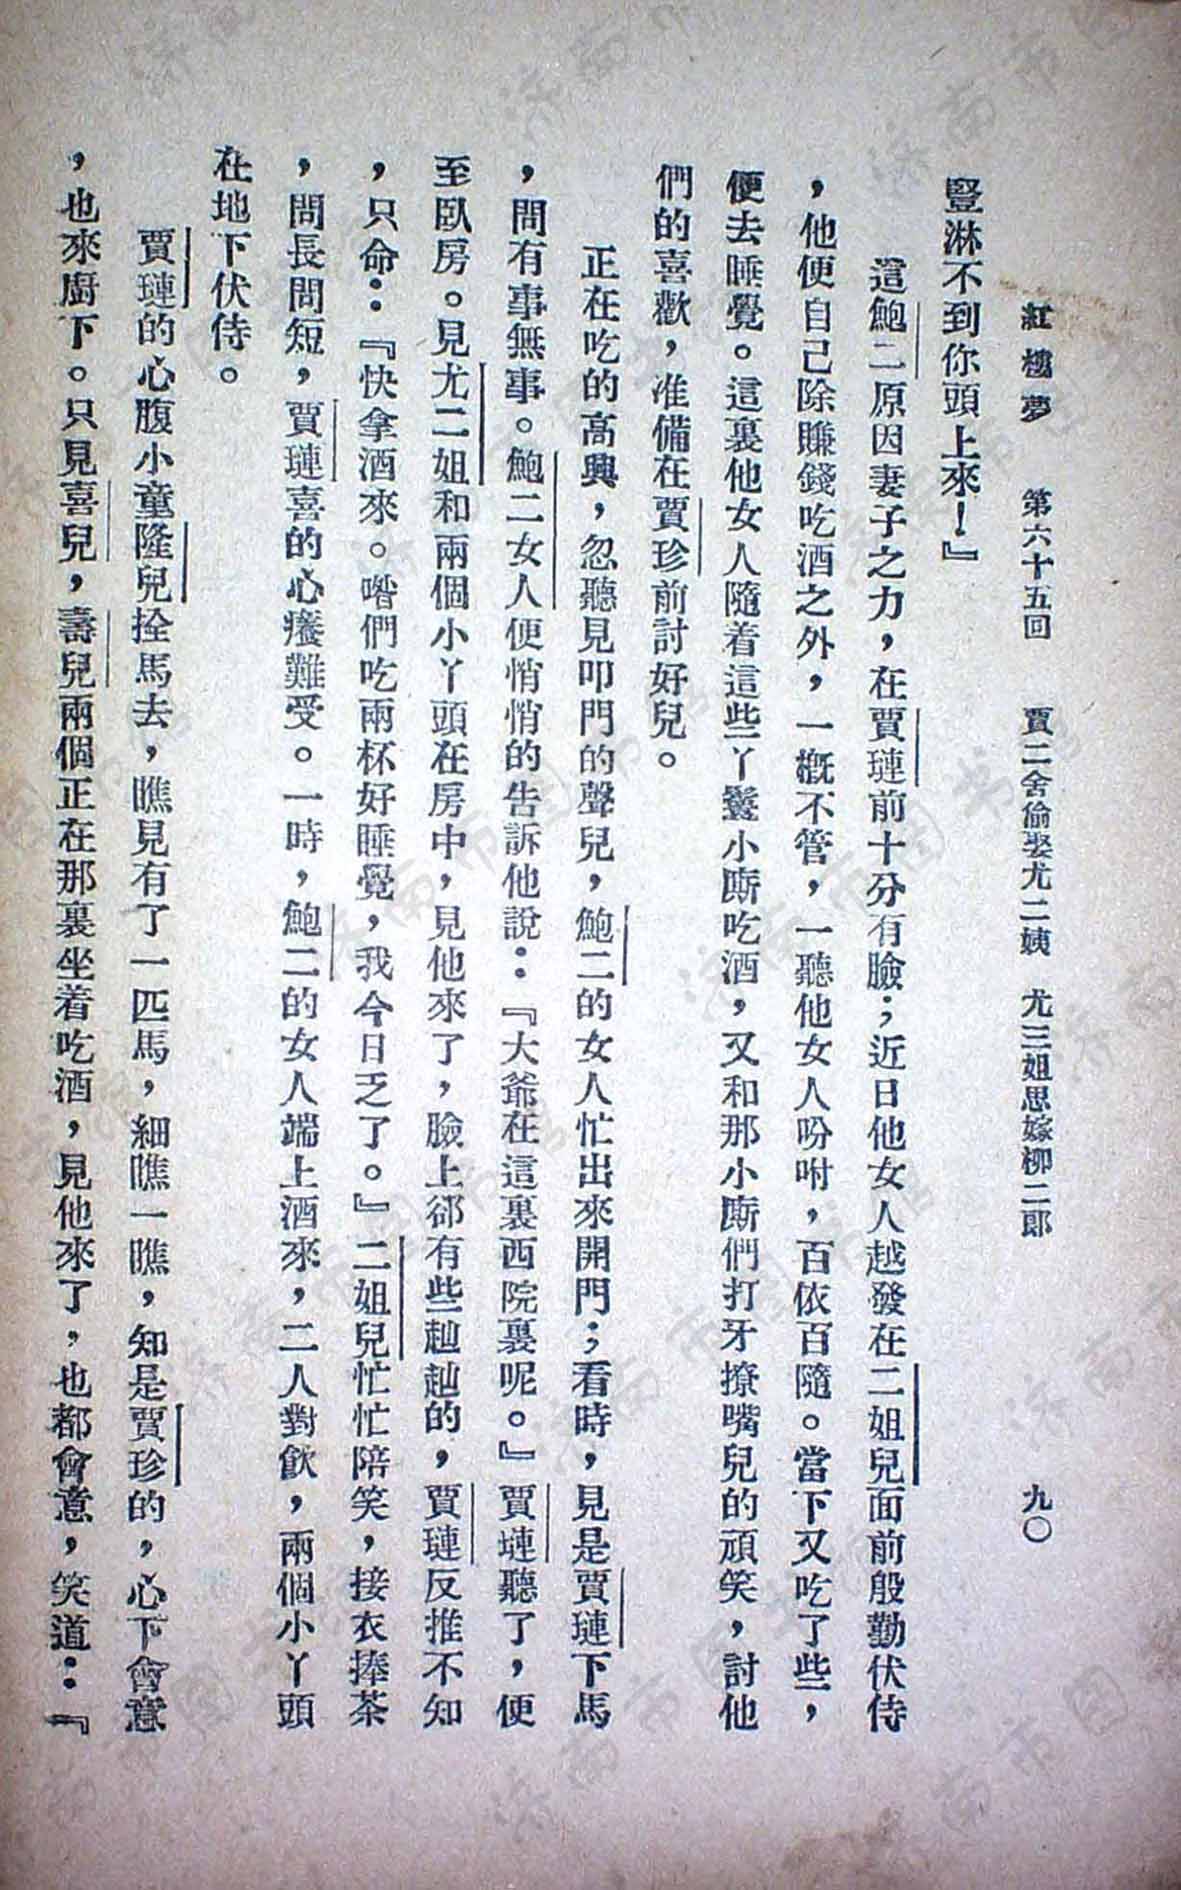 紅樓夢　第六十五回　賈二舍偷娶尤二姨　尤三姐思嫁柳二郎　九〇
豎淋不到你頭上來！』
這鮑二原因妻子之力，在賈璉前十分有臉；近日他女人越發在二姐兒面前殷勤伏侍
，他便自己除賺錢吃酒之外，一概不管，一聽他女人吩咐，百依百隨。當下又吃了些，
便去睡覺。這裏他女人隨着這些丫鬟小廝吃酒，又和那小廝們打牙撩嘴兒的頑笑，討他
們的喜歡，准備在賈珍前討好兒。
正在吃的高興，忽聽見叩門的聲兒，鮑二的女人忙出來開門；看時，見是賈璉下馬
，問有事無事。鮑二女人便悄悄的告訴他說：『大爺在這裏西院裏呢。』賈璉聽了，便
至臥房。見尤二姐和兩個小丫頭在房中，見他來了，臉上卻有些赸赸的，賈璉反推不知
，只命：『快拿酒來。喒們吃兩杯好睡覺，我今日乏了。』二姐兒忙忙陪笑，接衣捧茶
，問長問短，賈璉喜的心癢難受。一時，鮑二的女人端上酒來，二人對飲，兩個小丫頭
在地下伏侍。
賈璉的心腹小童隆兒拴馬去，瞧見有了一匹馬，細瞧一瞧，知是賈珍的，心下會意
，也來廚下。只見喜兒，壽兒兩個正在那裏坐着吃酒，見他來了，也都會意，笑道：『
濟南市图书馆